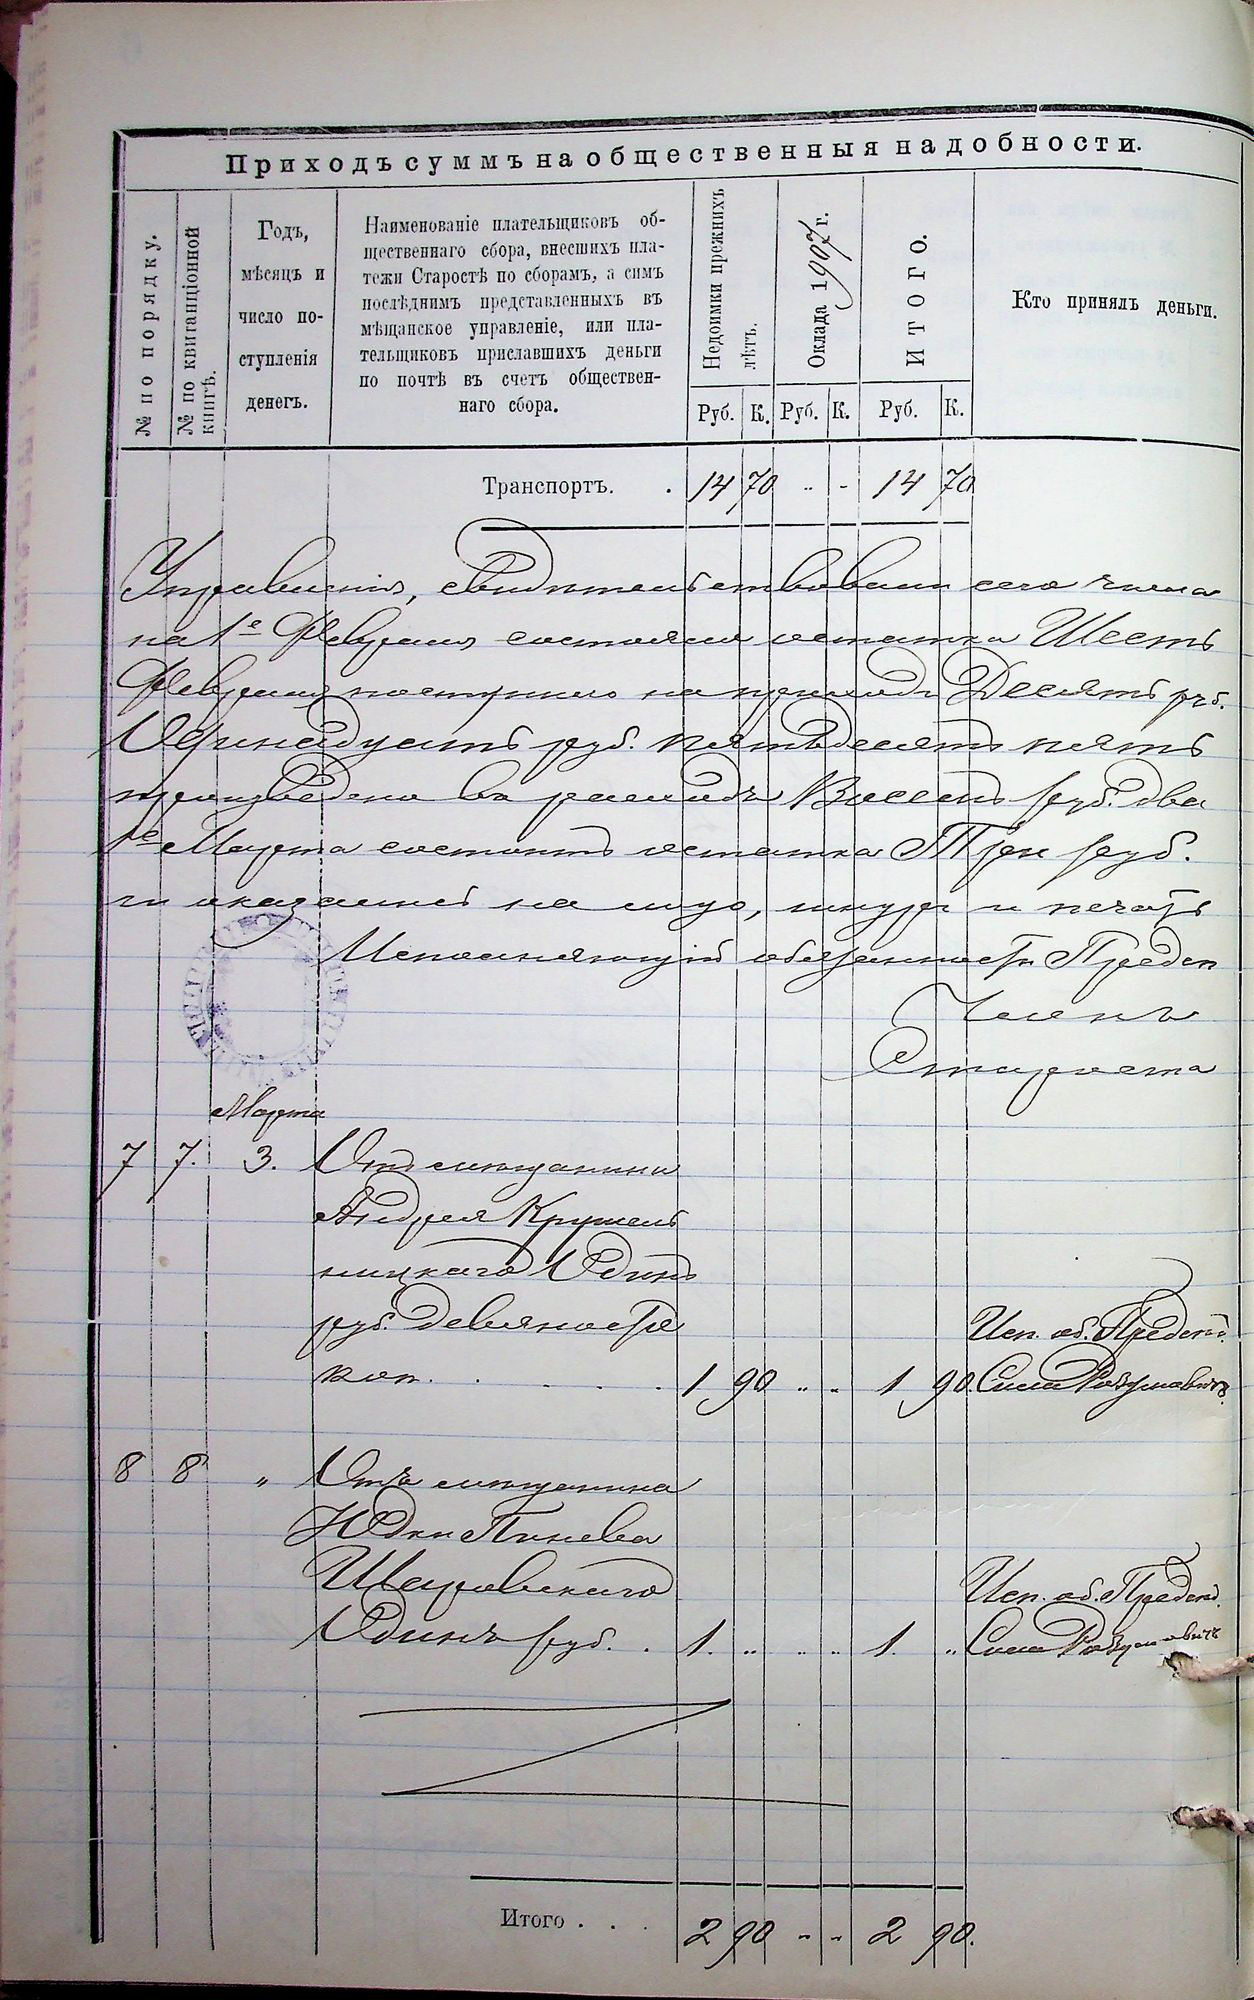 Приходъ суммъ на общественныя надобности.
№ по порядку.
№ по квитанціонной книгѣ.
Годъ,
мѣсяцъ и
число по-
ступленія
денегъ.
Наименованіе плательщиковъ об-
щественнаго сбора, внесшихъ пла-
тежи Старостѣ по сборамъ, а симъ
послѣднимъ представленныхъ въ
мѣщанское управленіе, или пла-
тельщиковъ приславшихъ деньги
по почтѣ въ счетъ обществен-
наго сбора.
Недоимки прежнихъ лѣтъ.
Оклада 1907 г.
ИТОГО.
Кто принялъ деньги.
Руб. К. Руб. К. Руб. К.
Транспортъ. . 14 70 " - 14 70
Управленія, свидѣтельствовали сего числа
на 1е Февраля состояло остатка Шесть
Февраля поступило на приходъ Десять руб.
Одинадцать руб. пятьдесятъ пять
произведено въ расходъ Восемь руб. два
1е Марта состоитъ остатка Три руб.
и оказались на лицо, шнуръ и печать
Исполняющій обязанности Предсѣ
Членъ
Староста
Марта
7 7. 3. Отъ мѣщанина
Андрея Крушель
ницкаго Одинъ
руб. девяносто
коп. . . . . . 1 90 " " 1 90
Исп. об. Предсѣд.
Сила Розумовичъ
8 8 " Отъ мѣщанина
Юдки Пинева
Шаровскаго
Одинъ руб. . 1. " " " 1. "
Исп. об. Предсѣд.
Сила Розумовичъ
Итого . . . 2 90 " " 2 90.